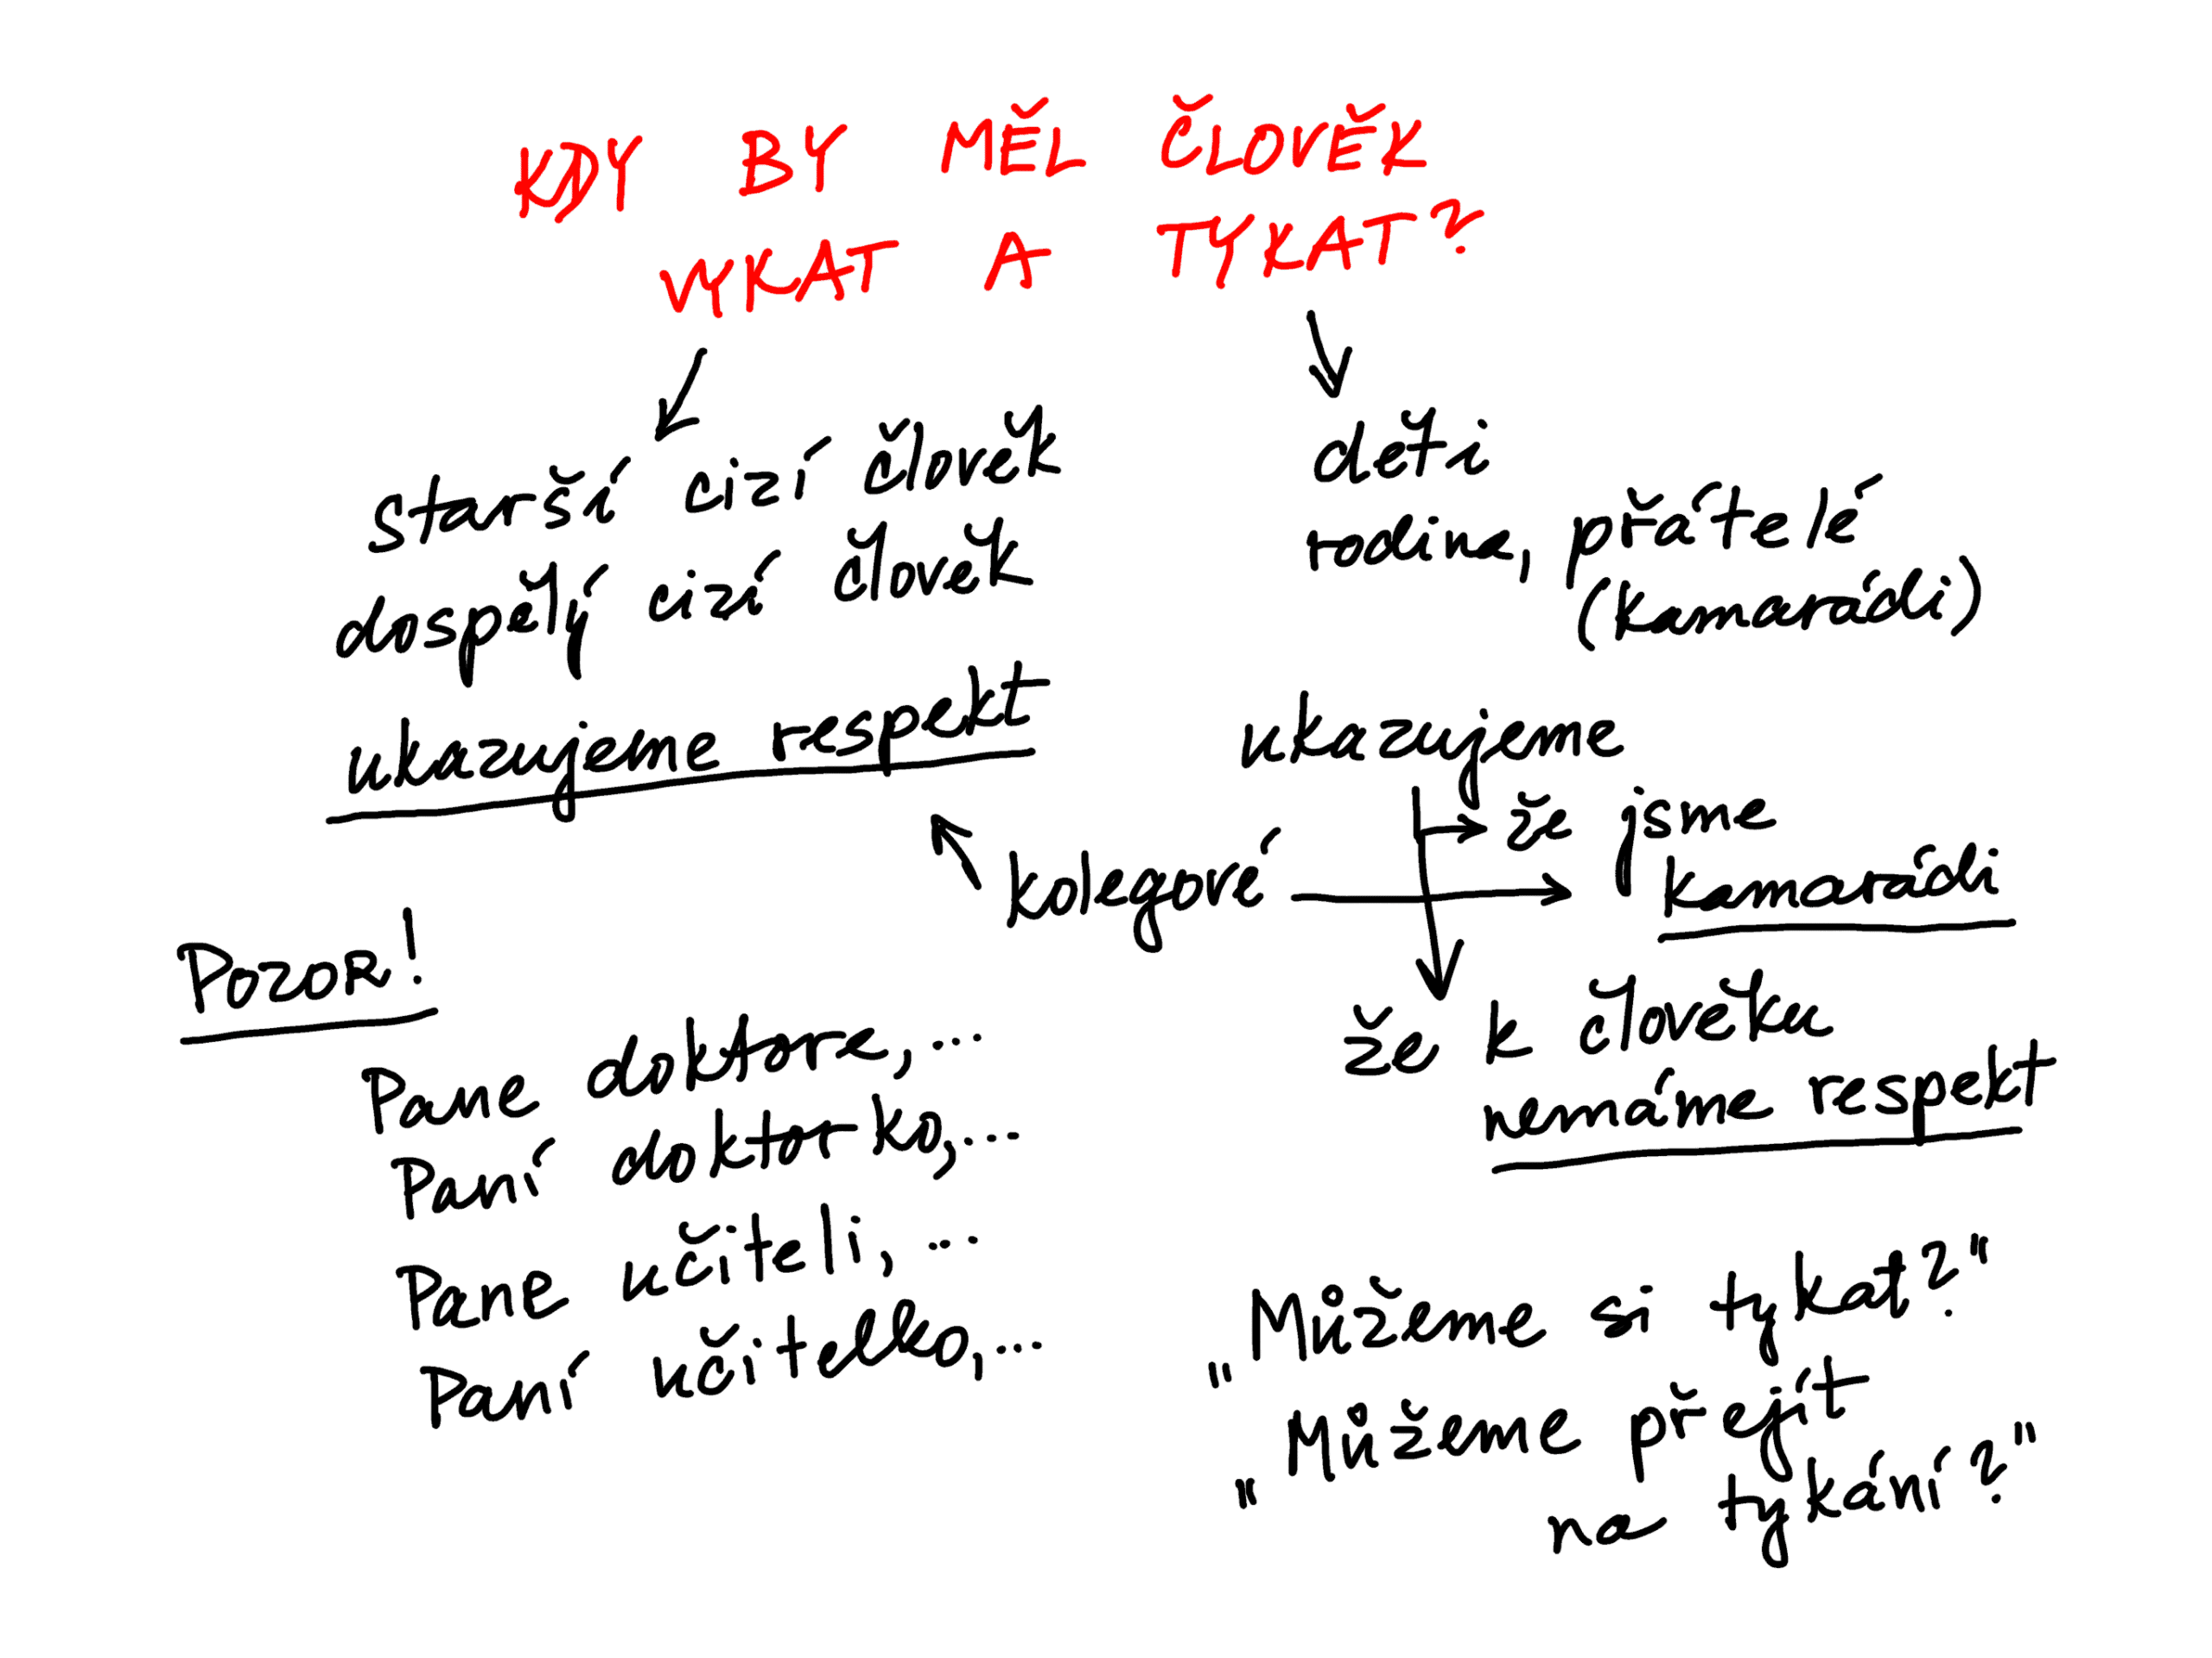 KDY BY MĚL ČLOVĚK
VYKAT A TYKAT?
starší cizí člověk
dospělý cizí člověk
ukazujeme respekt
děti
rodina, přátelé
(kamarádi)
ukazujeme
že jsme
kamarádi
kolegové
že k člověku
nemáme respekt
POZOR!
Pane doktore,...
Paní doktorko,...
Pane učiteli,...
Paní učitelko,...
„Můžeme si tykat?"
„Můžeme přejít
na tykání?"